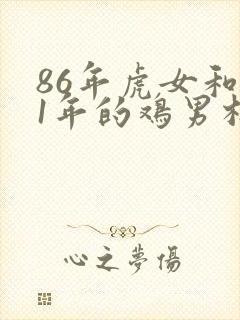 86年虎女和
1年的鸡男相
心之夢傷